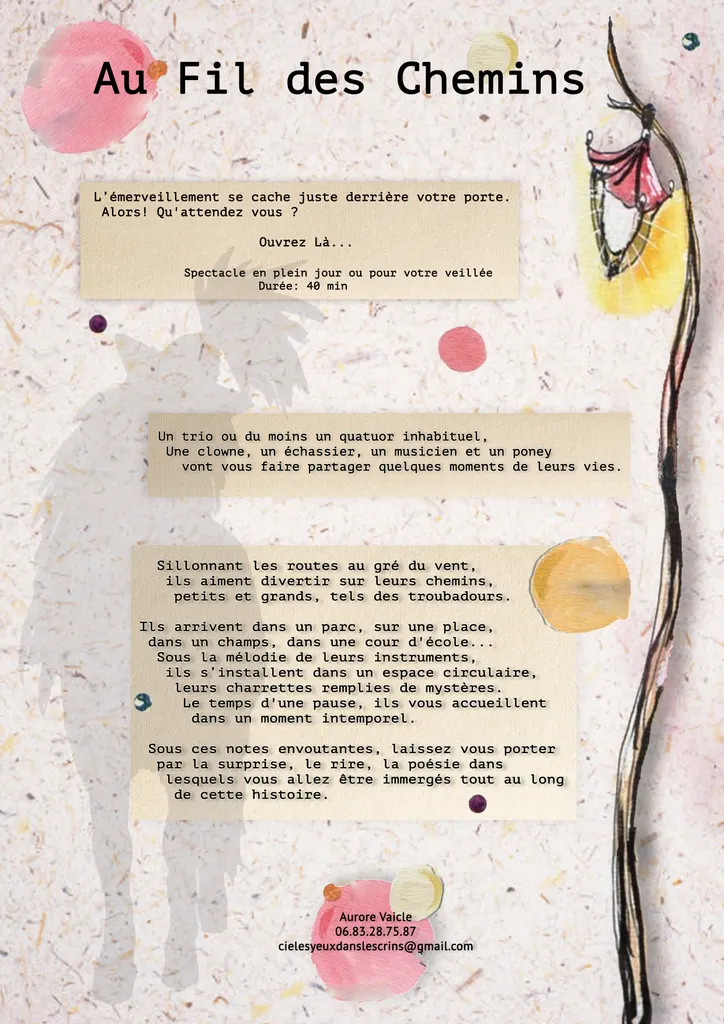 Au Fil des Chemins
L'émerveillement se cache juste derrière votre porte.
Alors! Qu'attendez vous ?
Ouvrez Là...
Spectacle en plein jour ou pour votre veillée
Durée: 40 min
Un trio ou du moins un quatuor inhabituel,
Une clowne, un échassier, un musicien et un poney
vont vous faire partager quelques moments de leurs vies.
Sillonnant les routes au gré du vent,
ils aiment divertir sur leurs chemins,
petits et grands, tels des troubadours.
Ils arrivent dans un parc, sur une place,
dans un champs, dans une cour d'école...
Sous la mélodie de leurs instruments,
ils s'installent dans un espace circulaire,
leurs charrettes remplies de mystères.
Le temps d'une pause, ils vous accueillent
dans un moment intemporel.
Sous ces notes envoutantes, laissez vous porter
par la surprise, le rire, la poésie dans
lesquels vous allez être immergés tout au long
de cette histoire.
Aurore Vaicle
06.83.28.75.87
cielesyeuxdanslescrins@gmail.com